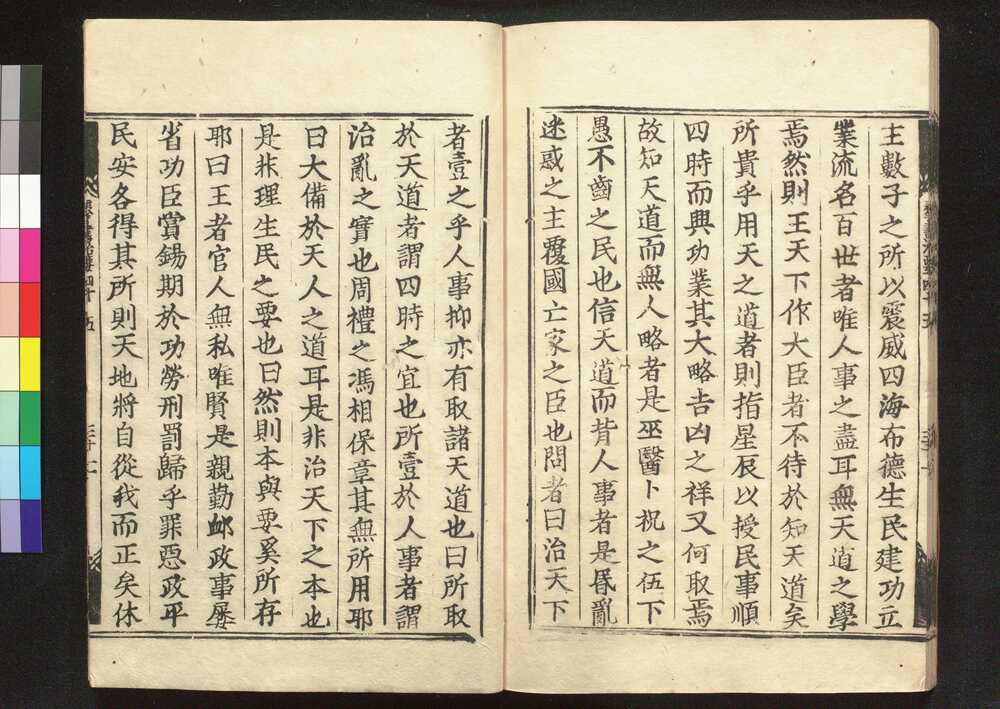 主數子之所以震威四海布德生民建功立
業流名百世者唯人事之盡耳無天道之學
焉然則王天下作大臣者不待於知天道矣
所貴乎用天之道者則指星辰以授民事順
四時而興功業其大略吉凶之祥又何取焉
故知天道而無人略者是巫醫卜祝之伍下
愚不齒之民也信天道而背人事者是昏亂
迷惑之主覆國亡家之臣也問者曰治天下
者壹之乎人事抑亦有取諸天道也曰所取
於天道者謂四時之宜也所壹於人事者謂
治亂之實也周禮之馮相保章其無所用耶
曰大備於天人之道耳是非治天下之本也
是非理生民之要也曰然則本與要奚所存
耶曰王者官人無私唯賢是親勤卹政事屢
省功臣賞錫期於功勞刑罰歸乎罪惡政平
民安各得其所則天地將自從我而正矣休
四十五